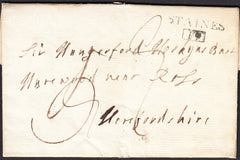 STAINES
19
Sir Hungerford Hoskyns Bart
Harewood near Ross
Herefordshire